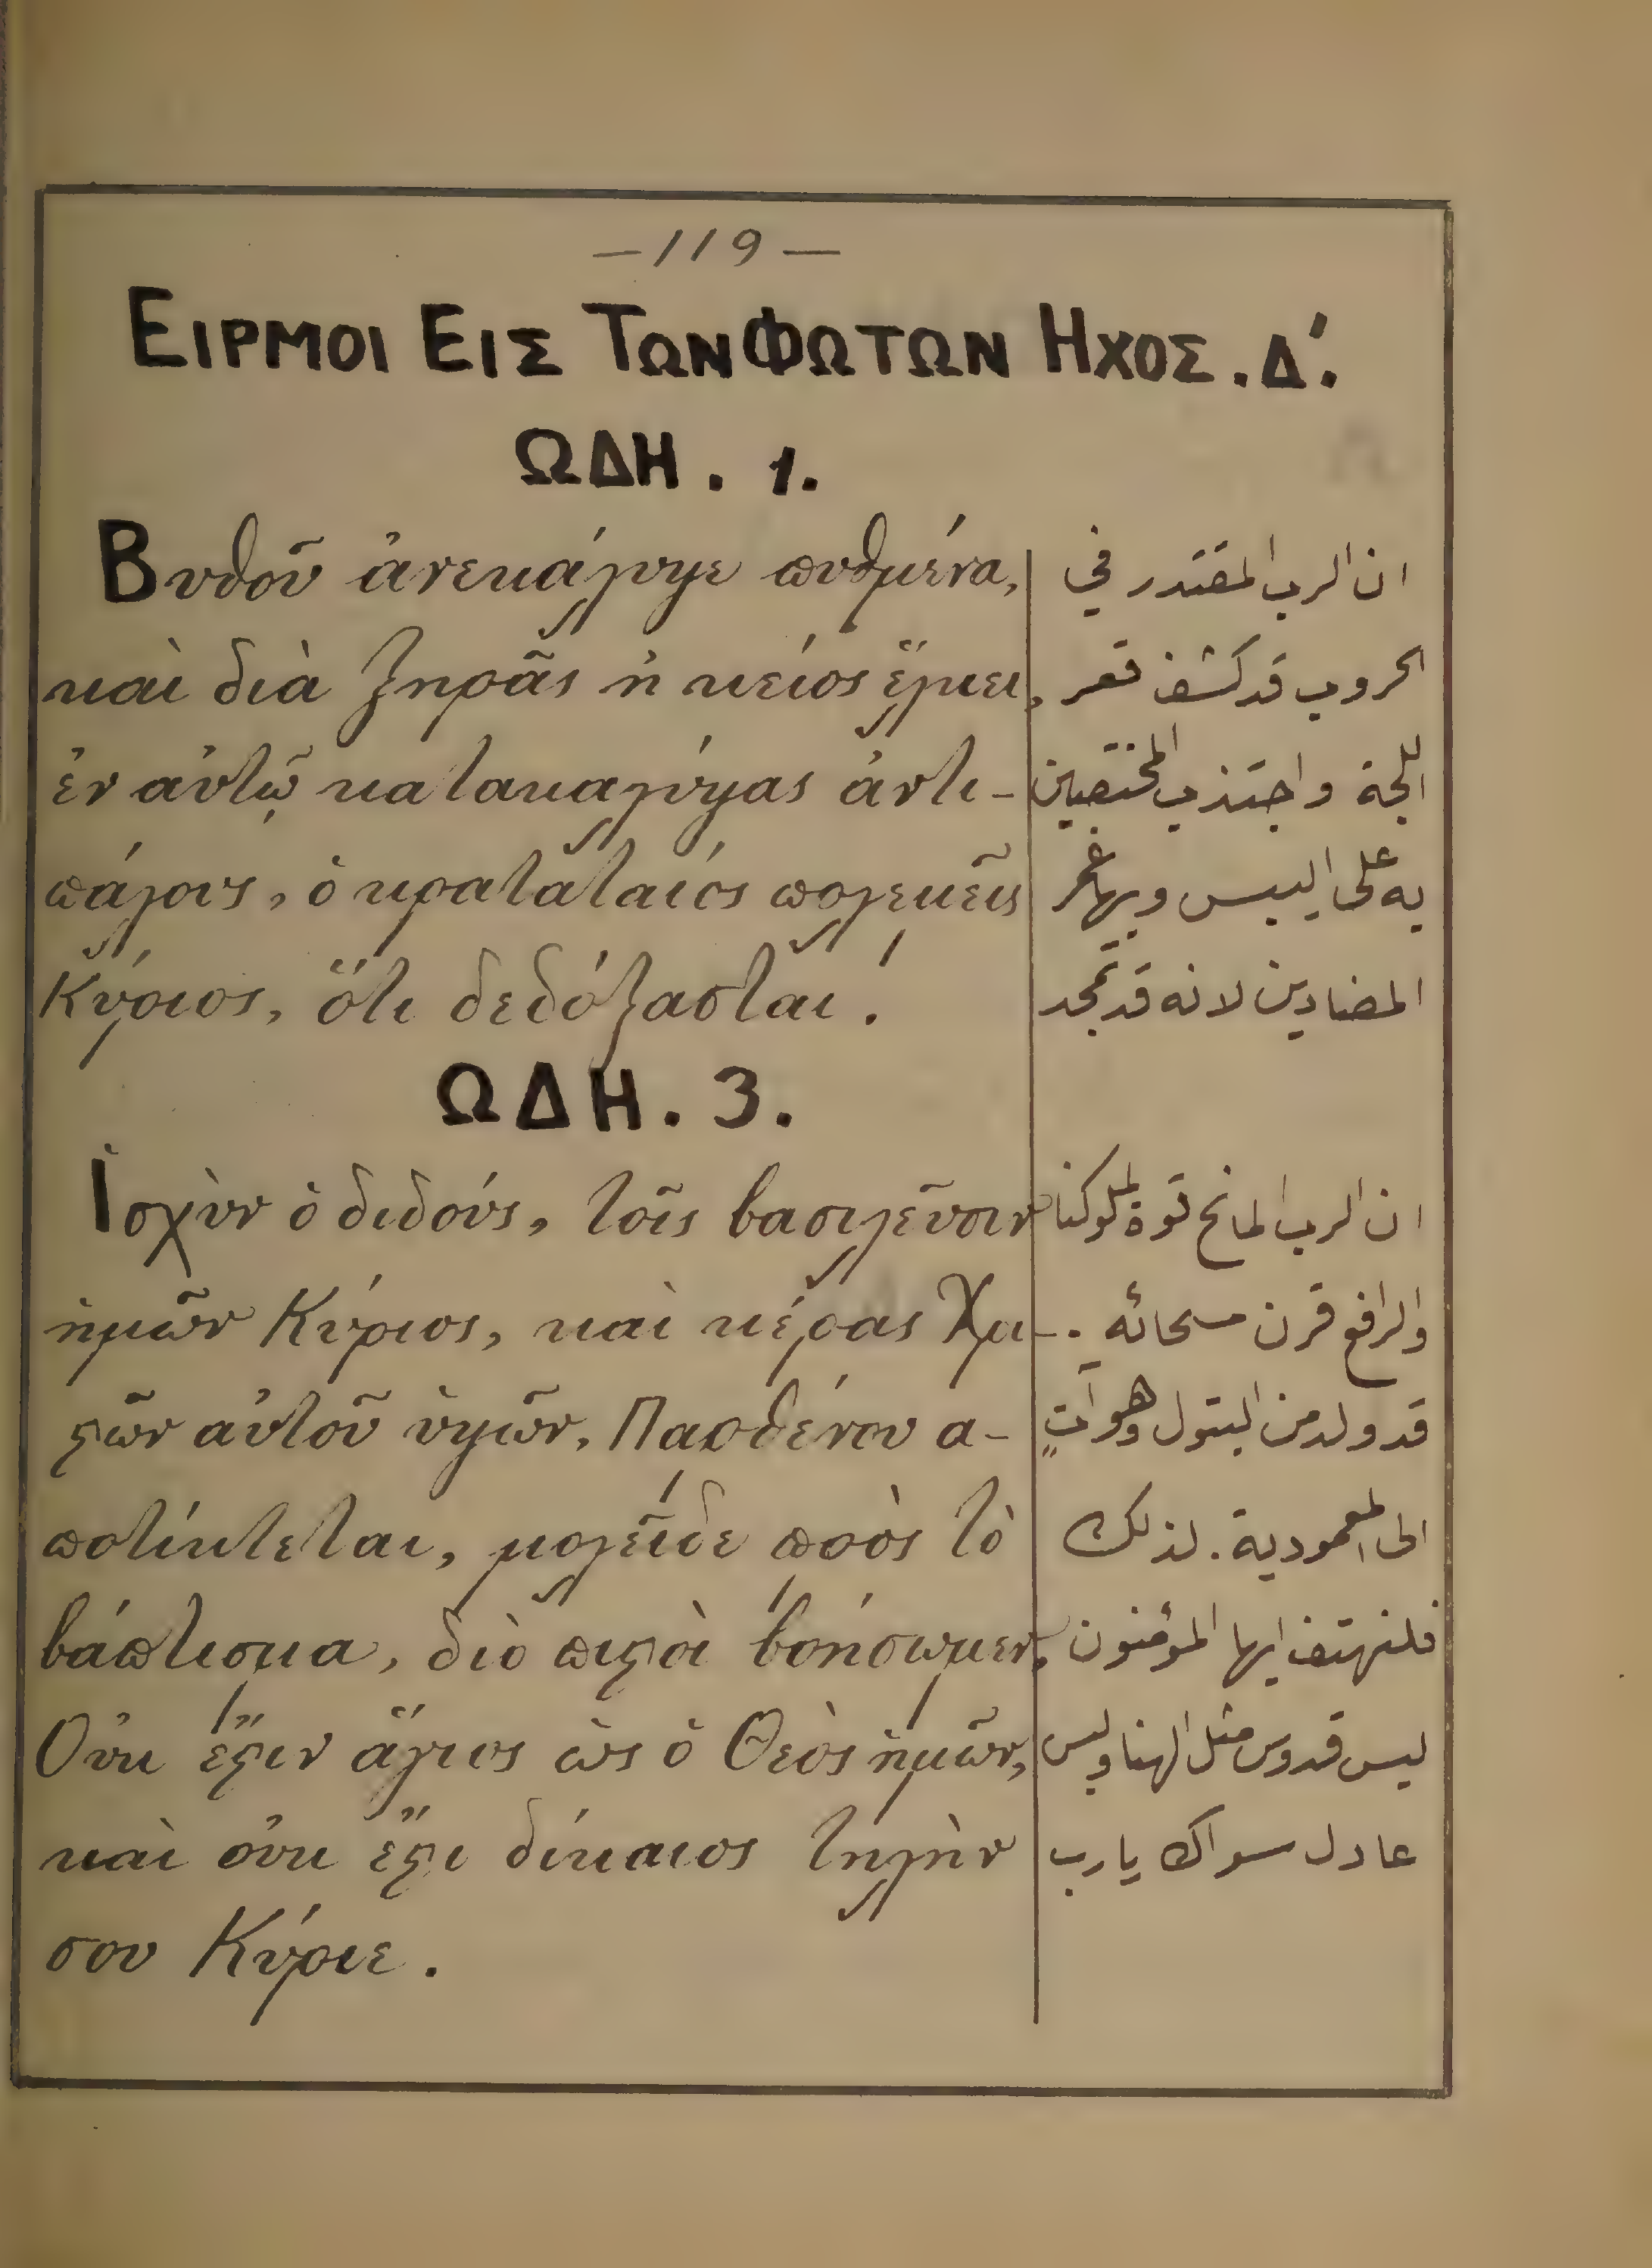 —119—
ΕΙΡΜΟΙ ΕΙΣ ΤΩΝ ΦΩΤΩΝ ΗΧΟΣ. Δ΄.
ΩΔΗ. 1.
Βυθοῦ ἀνεκάλυψε πυθμένα,
καὶ διὰ ξηρᾶς ἠ κείος ἕλκει,
ἐν αὐτῷ κατακαλύψας ἀντι-
πάλους, ὁ κραταταιός πολεκεῖς
Κύριος, ὅτι δεδόξασται.
ان الرب المقتدر في
الحروب قد كشف قعر
اللجة واجتذب المختصين
به على اليبس وبها غمر
المضادين لانه قد تمجد
ΩΔΗ. 3.
Ἰσχὺν ὁ διδούς, τοῖς βασιλεῦσιν
ἡμῶν Κύριος, καὶ κέρας Χρι-
ϛῶν αὐτοῦ ὑψῶν, Παρθένου α-
ποτίκτεται, μολεῖδε πρὸς τὸ
βάπτισμα, διὸ πιϛοὶ βοήσωμεν,
Οὐκ ἔϛιν ἅγιος ὡς ὁ Θεὸς ἡμῶν,
καὶ οὐκ ἔϛι δίκαιος τηλὴν
σου Κύριε.
ان الرب المانح قوة لملوكنا
والرافع قرن مسحائه .
قد ولد من البتول وهو آتٍ
الى المعمودية . لذلك
فلنهتف ايها المؤمنون
ليس قدوس مثل الهنا وليس
عادل سواك يا رب